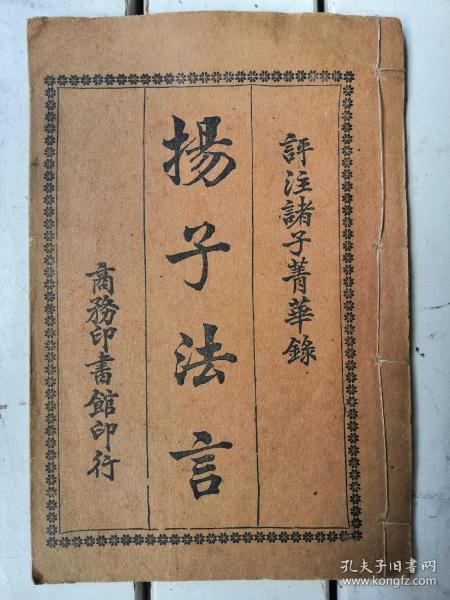 評注諸子菁華錄
揚子法言
商務印書館印行
孔夫子旧书网
www.kongfz.com